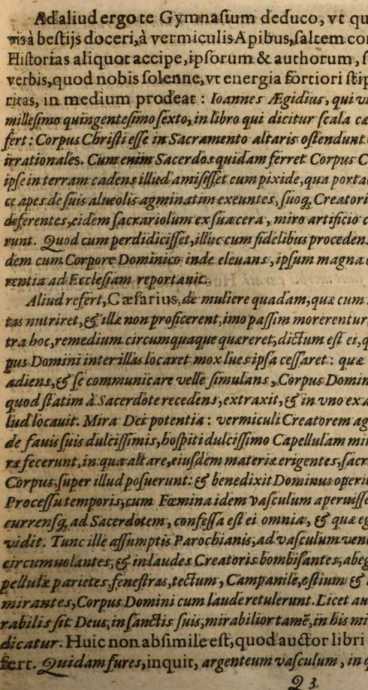 Ad aliud ergo te Gymnasium deduco, vt qu
vis à bestijs doceri, à vermiculis Apibus, saltem con
Historias aliquot accipe, ipsorum & authorum, s
verbis, quod nobis solenne, vt energia fortiori stip
ritas, in medium prodeat: Ioannes Ægidius, qui vi
millesimo quingentesimo sexto, in libro qui dicitur scala cæ
fert: Corpus Christi esse in Sacramento altaris ostendunt
irrationales. Cum enim Sacerdos quidam ferret Corpus C
ipse in terram cadens illud amisisset cum pixide, qua porta
ce apes de suis alueolis agminatim exeuntes, suoq, Creatori
deferentes, eidem sacrariolum ex sua cera, miro artificio c
runt. Quod cum perdidicisset, illuc cum fidelibus proceden
dem cum Corpore Dominico inde eleuans, ipsum magna c
rentia ad Ecclesiam reportauit.
Aliud refert, Cæsarius, de muliere quadam, quæ cum
tas nutriret, & illæ non proficerent, imo passim morerentur,
tra hoc, remedium circumquaque quæreret, dictum est ei, q
pus Domini inter illas locaret mox lues ipsa cessaret: quæ
adiens, & se communicare velle simulans, Corpus Domin
quod statim à Sacerdote recedens, extraxit, & in vno ex a
liud locauit. Mira Dei potentia: vermiculi Creatorem ag
de fauis suis dulcissimis, hospiti dulcissimo Capellulam mir
re fecerunt, in qua altare, eiusdem materiæ erigentes, sacr
Corpus, super illud posuerunt: & benedixit Dominus operi
Processu temporis, cum Fœmina idem vasculum aperuisse
currensq, ad Sacerdotem, confessa est ei omnia, & quæ eg
vidit. Tunc ille assumptis Parochianis, ad vasculum veni
circumuolantes, & in laudes Creatoris bombisantes, abeg
pellulæ parietes, fenestras, tectum, Campanile, ostium &
mirantes, Corpus Domini cum laude retulerunt. Licet au
rabilis sit Deus, in sanctis suis, mirabilior tamē, in his mi
dicatur. Huic non absimile est, quod auctor libri
fert. Quidam fures, inquit, argenteum vasculum, in q
Q 3.